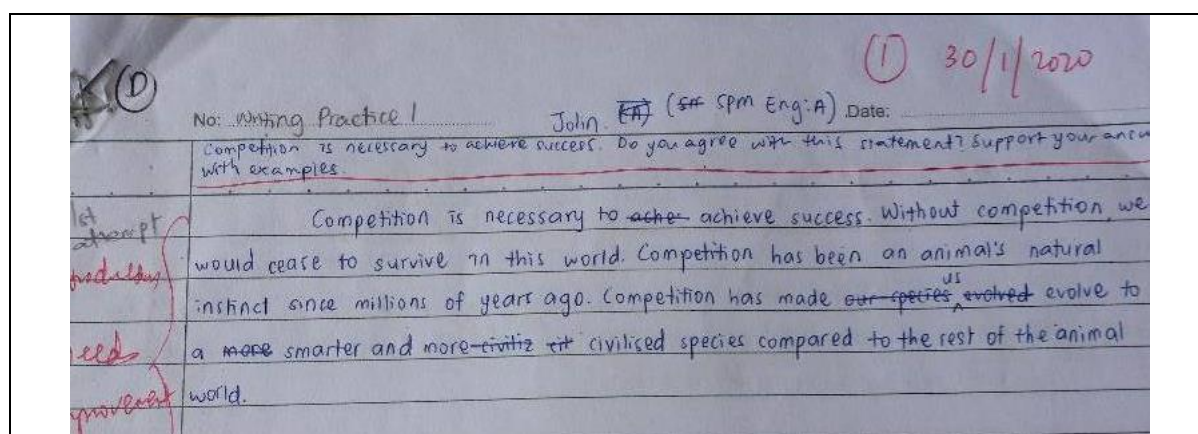 ① 30/1/2020
Ⓓ
No: Writing Practice 1 John (SPM Eng:A) Date:
Competition is necessary to achieve success. Do you agree with this statement? Support your
with examples.
1st
attempt
Competition is necessary to achieve success. Without competition, we
would cease to survive in this world. Competition has been an animal's natural
instinct since millions of years ago. Competition has made our species evolved us evolve to
a more smarter and more civilised species compared to the rest of the animal
world.